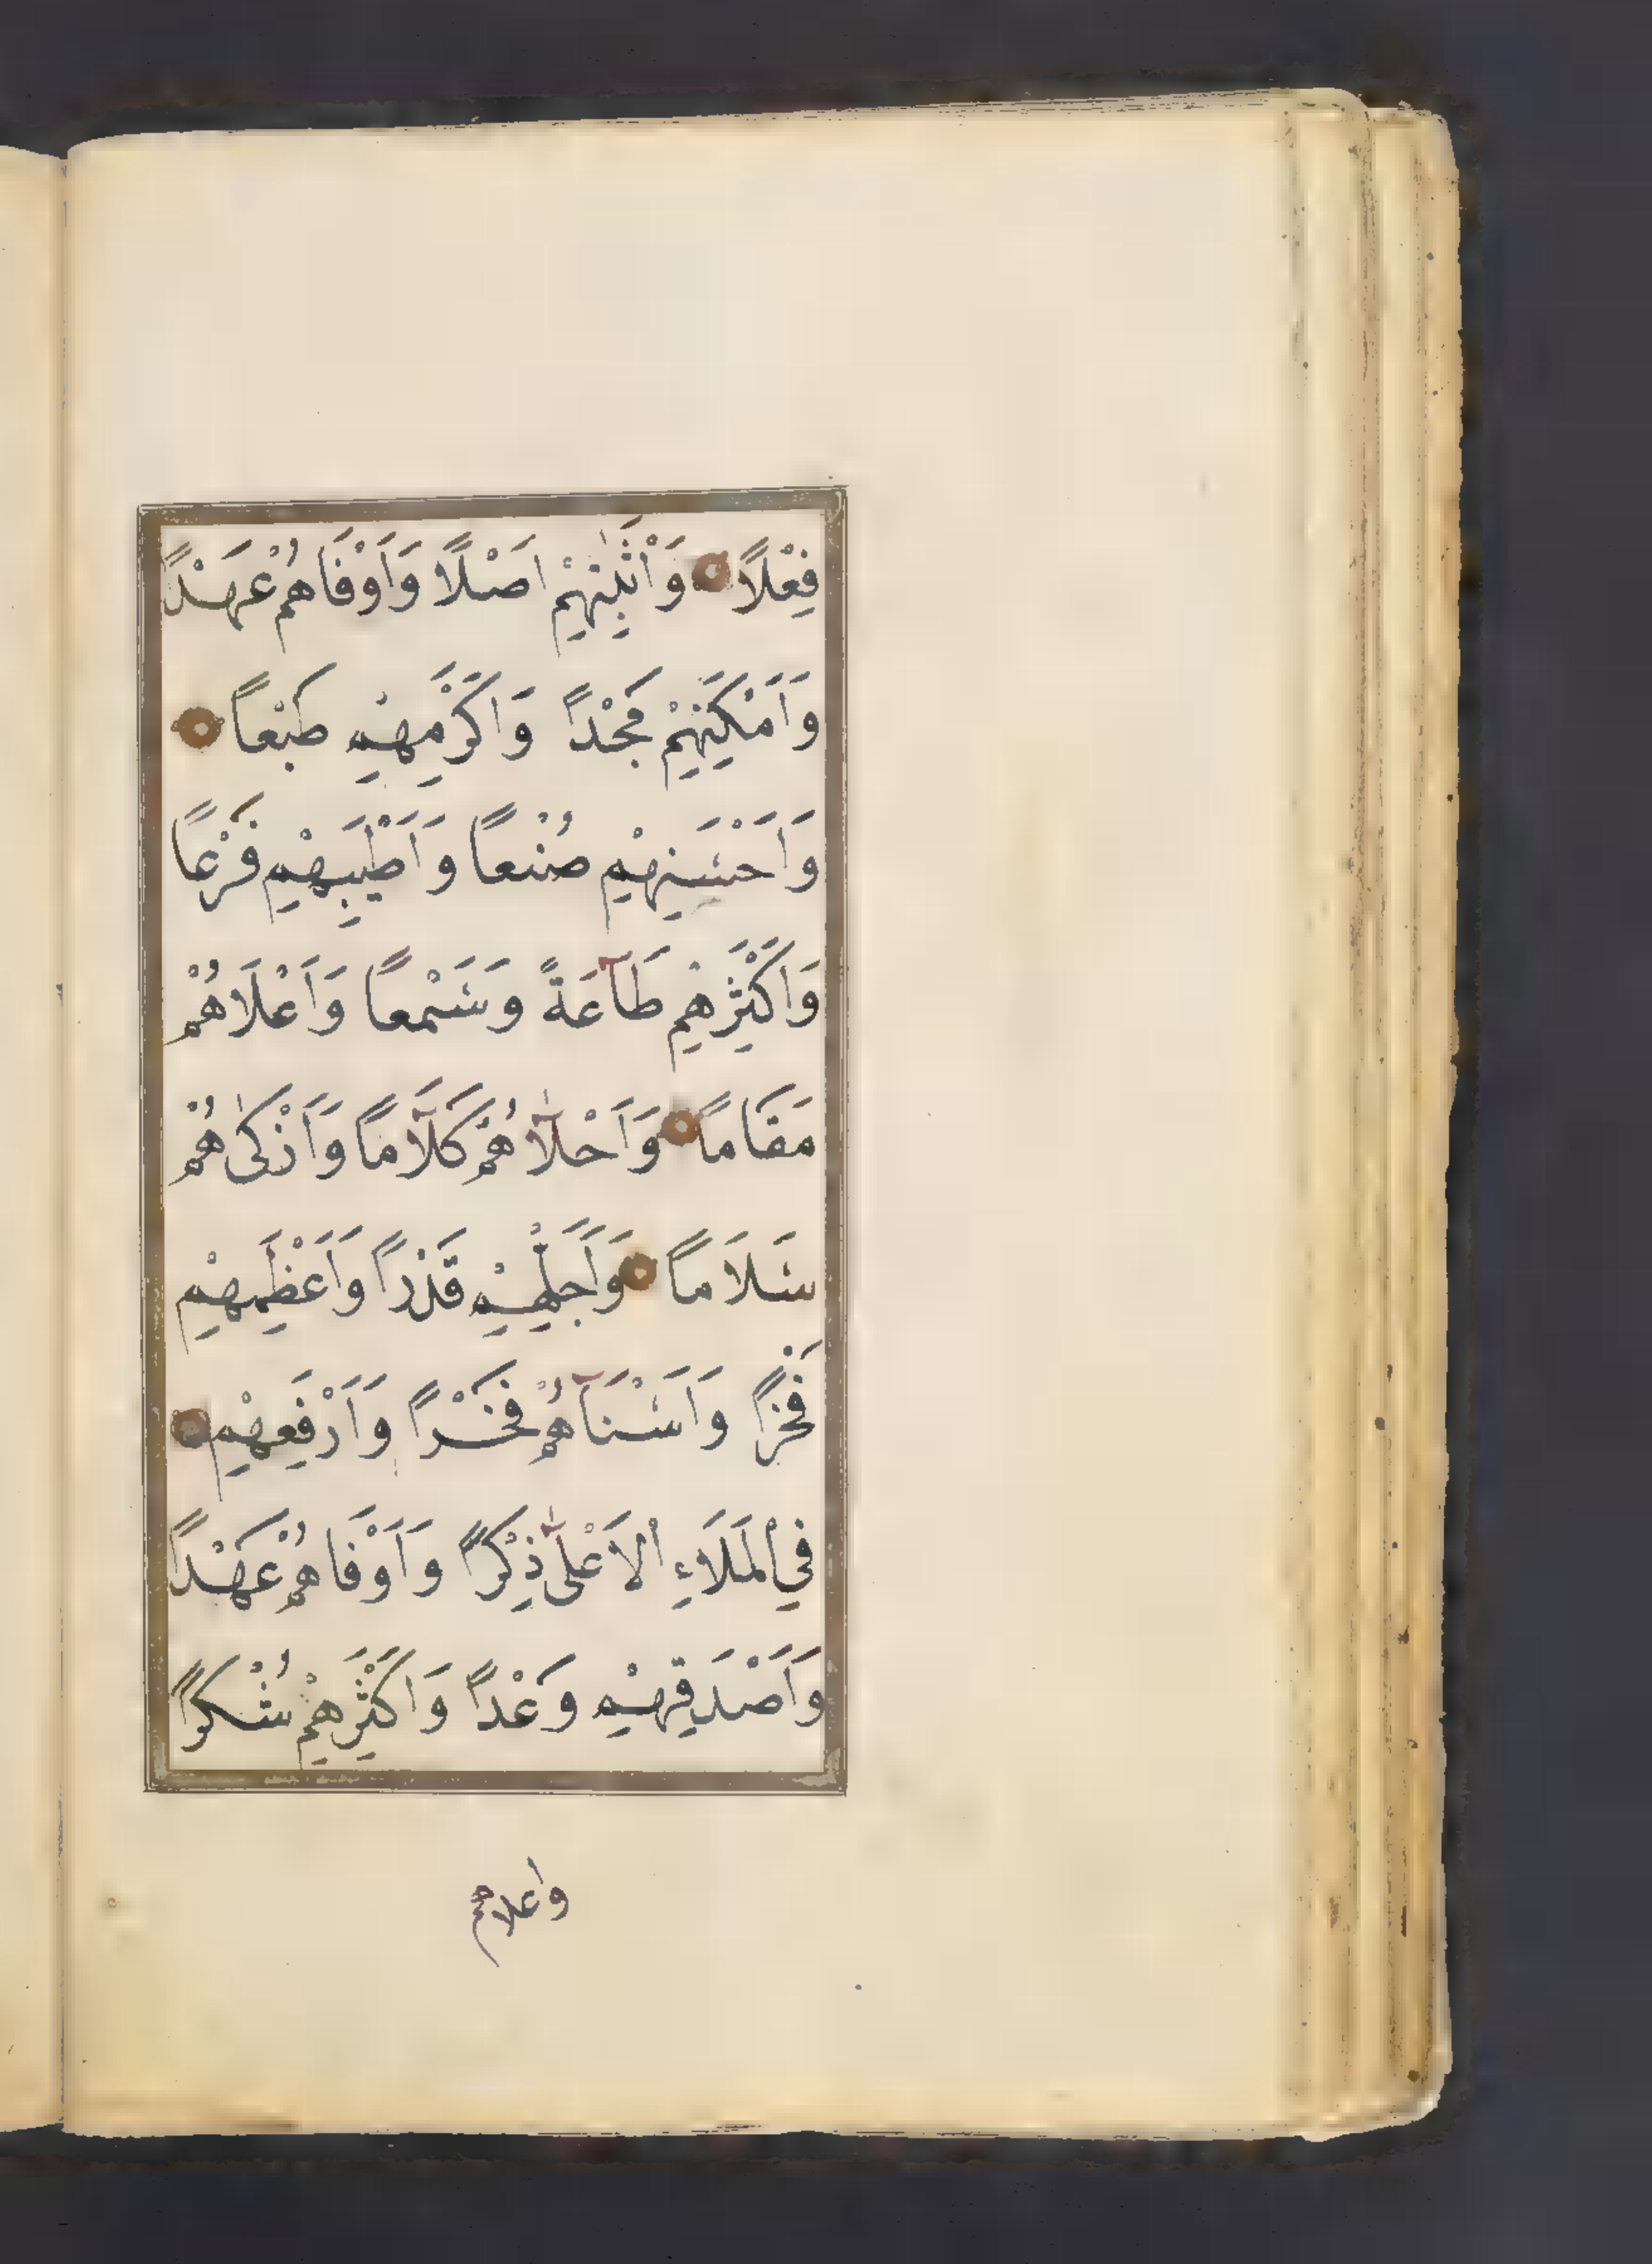 فِعْلًا وَاَثْبَتِهِمْ اَصْلًا وَاَوْفَاهُمْ عَهْدًا
وَاَمْكَنِهِمْ مَجْدًا وَاَكْرَمِهِمْ طَبْعًا
وَاَحْسَنِهِمْ صُنْعًا وَاَطْيَبِهِمْ فَرْعًا
وَاَكْثَرِهِمْ طَاعَةً وَسَمْعًا وَاَعْلَاهُمْ
مَقَامًا وَاَحْلَاهُمْ كَلَامًا وَاَزْكٰىهُمْ
سَلَامًا وَاَجَلِّهِمْ قَدْرًا وَاَعْظَمِهِمْ
فَخْرًا وَاَسْنَاهُمْ فَخْرًا وَاَرْفَعِهِمْ
فِي الْمَلَاءِ الْاَعْلٰى ذِكْرًا وَاَوْفَاهُمْ عَهْدًا
وَاَصْدَقِهِمْ وَعْدًا وَاَكْثَرِهِمْ شُكْرًا
واعلاهم